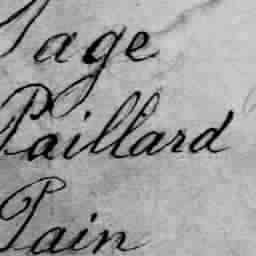 Page
Paillard
Pain